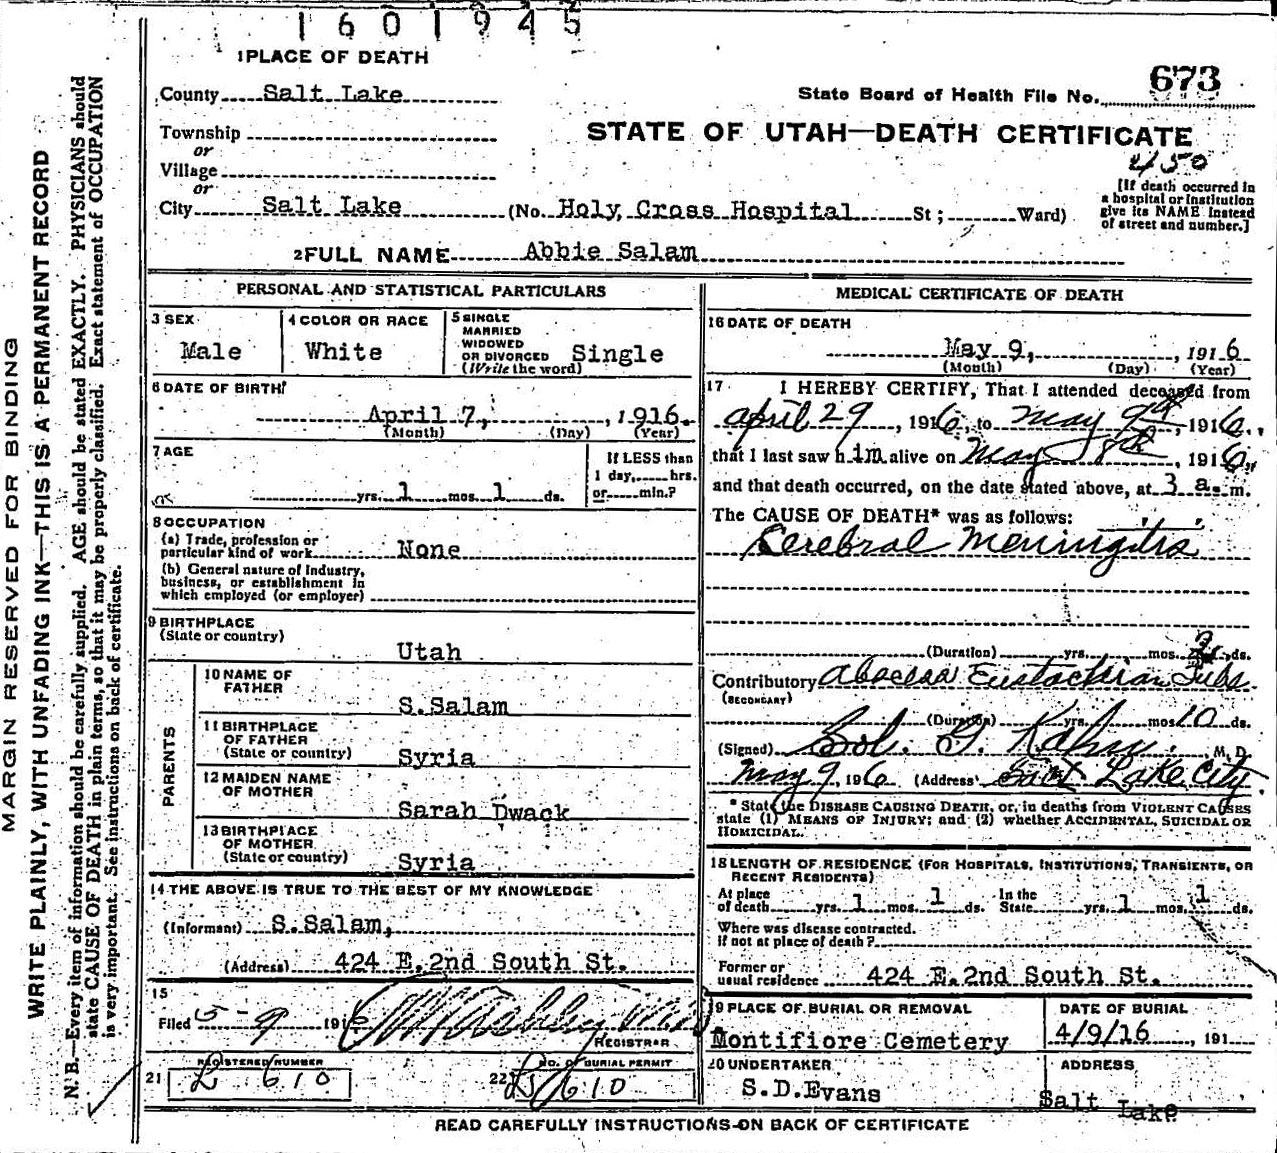 1601945
1 PLACE OF DEATH
County Salt Lake
State Board of Health File No. 673
Township
or
STATE OF UTAH—DEATH CERTIFICATE
450
Village
or
City Salt Lake (No. Holy Cross Hospital St; Ward)
[If death occurred in
a hospital or institution
give its NAME instead
of street and number.]
2 FULL NAME Abbie Salam
PERSONAL AND STATISTICAL PARTICULARS
3 SEX
Male
4 COLOR OR RACE
White
5 SINGLE
MARRIED
WIDOWED
OR DIVORCED
(Write the word)
Single
6 DATE OF BIRTH
April 7, , 1916.
(Month) (Day) (Year)
7 AGE
yrs. 1 mos. 1 ds.
If LESS than
1 day, hrs.
or min.?
8 OCCUPATION
(a) Trade, profession or
particular kind of work None
(b) General nature of industry,
business, or establishment in
which employed (or employer)
9 BIRTHPLACE
(State or country)
Utah
PARENTS
10 NAME OF
FATHER
S.Salam
11 BIRTHPLACE
OF FATHER
(State or country)
Syria
12 MAIDEN NAME
OF MOTHER
Sarah Dwack
13 BIRTHPLACE
OF MOTHER
(State or country)
Syria
14 THE ABOVE IS TRUE TO THE BEST OF MY KNOWLEDGE
(Informant) S.Salam,
(Address) 424 E.2nd South St.
15
Filed 5-9 1916
REGISTRAR
REGISTERED NUMBER
21 L 610
NO. OF BURIAL PERMIT
22 610
MEDICAL CERTIFICATE OF DEATH
16 DATE OF DEATH
May 9, , 1916
(Month) (Day) (Year)
17 I HEREBY CERTIFY, That I attended deceased from
April 29, 1916, to May 9th, 1916,
that I last saw him alive on May 8th, 1916,
and that death occurred, on the date stated above, at 3 a. m.
The CAUSE OF DEATH* was as follows:
Cerebral Meningitis
(Duration) yrs. mos. ds.
Contributory Abscess Eustachian Tube
(SECONDARY)
(Duration) yrs. mos 10 ds.
(Signed) Sol. G. Kahn M. D.
May 9, 1916 (Address) Salt Lake City.
* State the DISEASE CAUSING DEATH, or, in deaths from VIOLENT CAUSES
state (1) MEANS OF INJURY; and (2) whether ACCIDENTAL, SUICIDAL OR
HOMICIDAL.
18 LENGTH OF RESIDENCE (FOR HOSPITALS, INSTITUTIONS, TRANSIENTS, OR
RECENT RESIDENTS)
At place
of death yrs. 1 mos. 1 ds.
In the
State yrs. 1 mos. 1 ds.
Where was disease contracted.
if not at place of death?
Former or
usual residence 424 E.2nd South St.
19 PLACE OF BURIAL OR REMOVAL
Montifiore Cemetery
DATE OF BURIAL
4/9/16 , 191
20 UNDERTAKER
S.D.Evans
ADDRESS
Salt Lake
READ CAREFULLY INSTRUCTIONS ON BACK OF CERTIFICATE
MARGIN RESERVED FOR BINDING
WRITE PLAINLY, WITH UNFADING INK—THIS IS A PERMANENT RECORD
N. B.—Every item of information should be carefully supplied. AGE should be stated EXACTLY. PHYSICIANS should
state CAUSE OF DEATH in plain terms, so that it may be properly classified. Exact statement of OCCUPATION
is very important. See instructions on back of certificate.